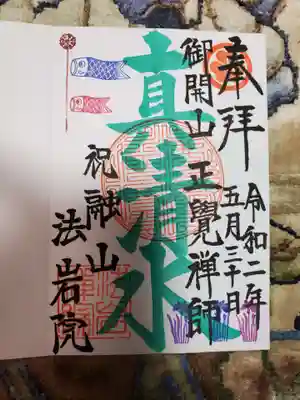 奉拝
令和二年
五月三十日
御開山 正覺禅師
真清水
祝融山
法岩院